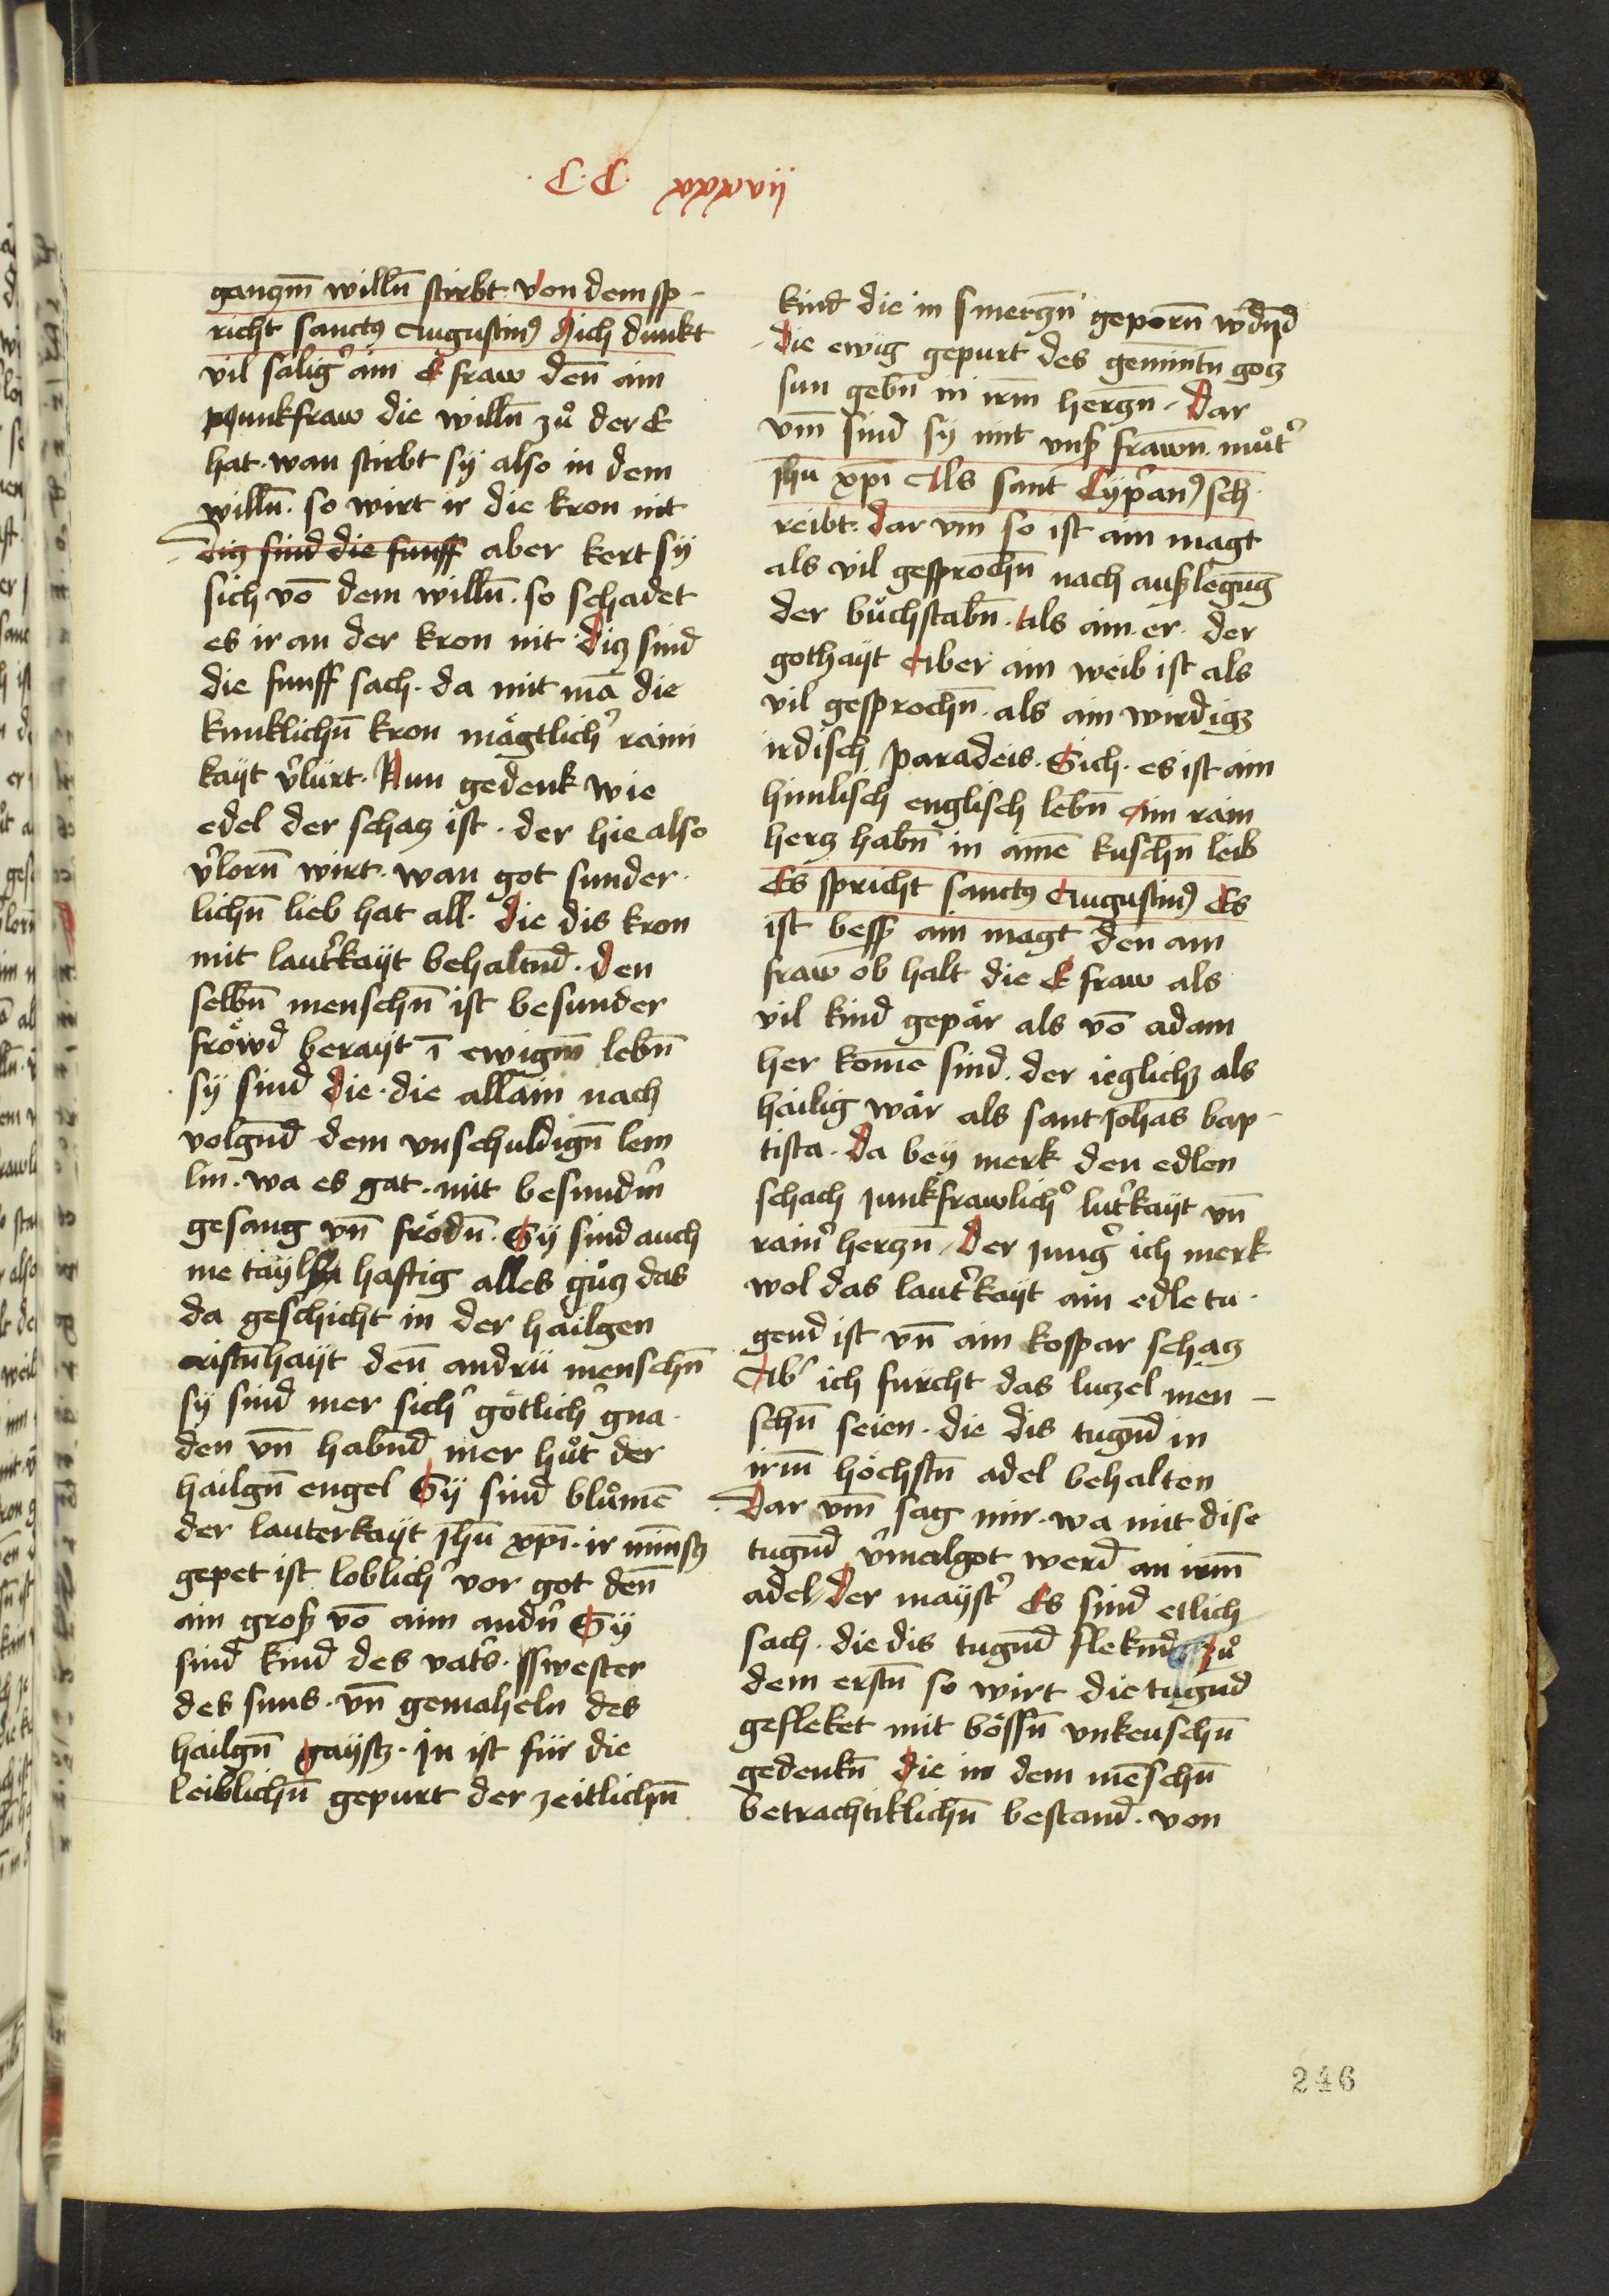 .C.C. xxxxvij
ganczm̄ willn̄ stirbt. Von dem sp-
richt sanctꝰ Augustinꝰ Mich dunkt
vil sälig͛ ain E fraw den̄ ain
junkfraw die willn̄ zů der E
hat. wan stirbt sÿ also in dem
willn̄. so wirt ir die kron nit
Dicz sind die funff aber kert sÿ
sich võ dem willn̄. so schadet
es ir an der kron nit. Dicz sind
die funff sach. da mit mā die
kunklichn̄ kron mägtlich͛ raini
kaÿt v͛lürt. Nun gedenk wie
edel der schacz ist. der hie also
v͛lorn̄ wirt. wan got sunder.
lichn̄ lieb hat all. Die dis kron
mit laut͛kaÿt behaltnd̄. Den
selbn̄ menschn̄ ist besunder
fröwd beraÿt ī ewigm̄ lebn̄
sÿ sind die. die allain nach
volgnd̄ dem vnschuldign̄ lem
lin. wa es gat. mit besundr͛n
gesang vn̄ frödn̄. Sÿ sind auch
me taÿl hafftig alles gůcz das
da geschicht in der hailgen
cristn̄haÿt den̄ andrü menschn̄
sÿ sind mer sich͛ götlich͛ gna.
den vn̄ habnd̄ mer hůt der
hailgn̄ engel Sÿ sind blůmē
der lauterkaÿt jhū xpī. ir minstz
gepet ist loblich͛ vor got den̄
ain groß võ aim andn͛ Sÿ
sind kind des vat͛s. swester
des suns. vn̄ gemaheln des
hailgn̄ gaÿstz. Jn ist für die
leiblichn̄ gepurt der zeitlichn̄
kind die in smerczn̄ geporn̄ w͛dnd̄
die ewig gepurt des gemintn̄ gocz
sun gebn̄ in irm̄ herczn̄. Dar
vm̄ sind sÿ mit vnß frawn̄. můt͛
jhū xpī Als sant Cÿp͛anꝰ sch.
reibt. Dar vm̄ so ist ain magt
als vil gesprochn̄ nach außlegūg
der bůchstabn̄. Als ain. er. der
gothaÿt Aber ain weib ist als
vil gesprochn̄. als ain wirdigz
irdisch paradeis. Sich. es ist ain
himlisch englisch lebn̄ Ain rain
hercz habn̄ in aimē kuschn̄ leib
Es spricht sanctꝰ Augustinꝰ Es
ist bess͛ ain magt den̄ ain
fraw ob halt die E fraw als
vil kind gepär als võ adam
her komē sind. der ieglichz als
hailig wär als sant johās bap-
tista. Da beÿ merk den edlen
schacz junkfrawlich͛ lut͛kaÿt vn̄
rain͛ herczn̄. Der jung͛ ich merk
wol das laut͛kaÿt ain edle tu.
gend ist vn̄ ain kospar schacz
Ab͛ ich fürcht das luczel men-
schn̄ seien. die dis tugnd̄ in
irm̄ höchstn̄ adel behalten
Dar vm̄ sag mir. wa mit dise
tugnd̄ v͛malgot werd̄ an irm̄
adel. Der maÿst͛ Es sind etlich
sach. die dis tugnd̄ fleknd̄ Zů
dem erstn̄ so wirt die tugnd̄
gefleket mit bössn̄ vnkeuschn̄
gedenkn̄ Die in dem mēschn̄
betrachtiklichn̄ bestand̄. von
246